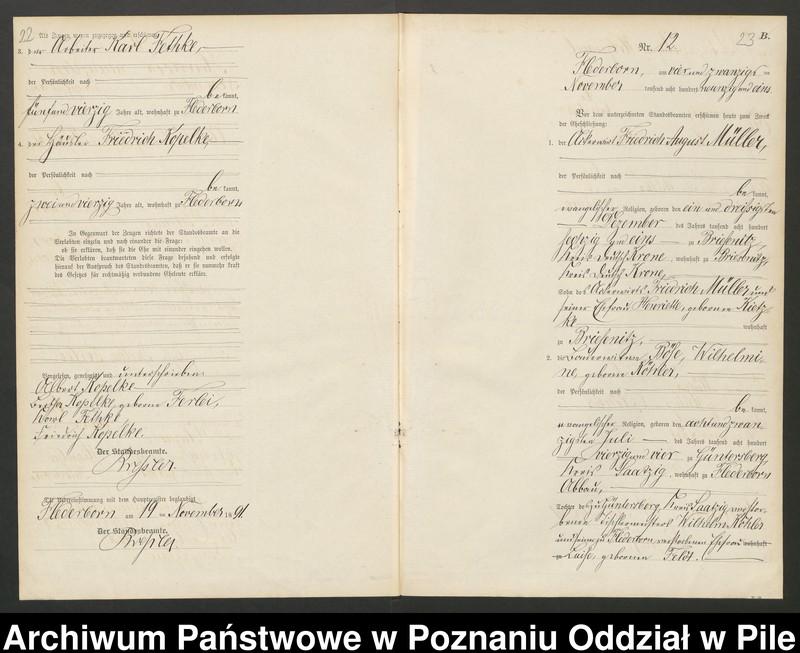 22
Als Zeugen waren zugezogen und erschienen:
3. der Arbeiter Karl Fethke,
der Persönlichkeit nach
be kannt,
fünfundvierzig Jahre alt, wohnhaft zu Flederborn
4. der Häusler Friedrich Kopelke,
der Persönlichkeit nach
be kannt,
zweiundvierzig Jahre alt, wohnhaft zu Flederborn
In Gegenwart der Zeugen richtete der Standesbeamte an die
Verlobten einzeln und nach einander die Frage:
ob sie erklären, daß sie die Ehe mit einander eingehen wollen.
Die Verlobten beantworteten diese Frage bejahend und erfolgte
hierauf der Ausspruch des Standesbeamten, daß er sie nunmehr kraft
des Gesetzes für rechtmäßig verbundene Eheleute erkläre.
Vorgelesen, genehmigt und unterschrieben
Albert Kopelke
Bertha Kopelke, geborne Ferlei,
Karl Fethke,
Friedrich Kopelke.
Der Standesbeamte.
Die Uebereinstimmung mit dem Hauptregister beglaubigt
Flederborn am 19 ten November 1891
Der Standesbeamte.
23
B.
Nr. 12.
Flederborn, am vier und zwanzigs ten
November tausend acht hundert neunzig und eins.
Vor dem unterzeichneten Standesbeamten erschienen heute zum Zweck
der Eheschließung:
1. der Ackerwirt Friedrich August Müller,
der Persönlichkeit nach
be kannt,
evangelischer Religion, geboren den ein und dreißigsten
Dezember des Jahres tausend acht hundert
sechzig und eins zu Briesenitz,
Kreis Deutsch Krone, wohnhaft zu Briesenitz,
Kreis Deutsch Krone,
Sohn des Ackerwirts Friedrich Müller und
seiner Ehefrau Henriette, geborenen Kietz-
ke wohnhaft
zu Briesenitz,
2. die Bauerwittwe Böse, Wilhelmi-
ne, geborne Köhler,
der Persönlichkeit nach
be kannt,
evangelischer Religion, geboren den achtundzwan
zigsten Juli des Jahres tausend acht hundert
vierzig und vier zu Güntersberg,
Kreis Saatzig, wohnhaft zu Flederborn
Abbau,
Tochter des zu Güntersberg, Kreis Saatzig verstor-
benen Tischlermeisters Wilhelm Köhler
und seiner zu Flederborn verstorbenen Ehefrau wohnhaft
zu Luise, geborenen Feldt.
Archiwum Państwowe w Poznaniu Oddział w Pile